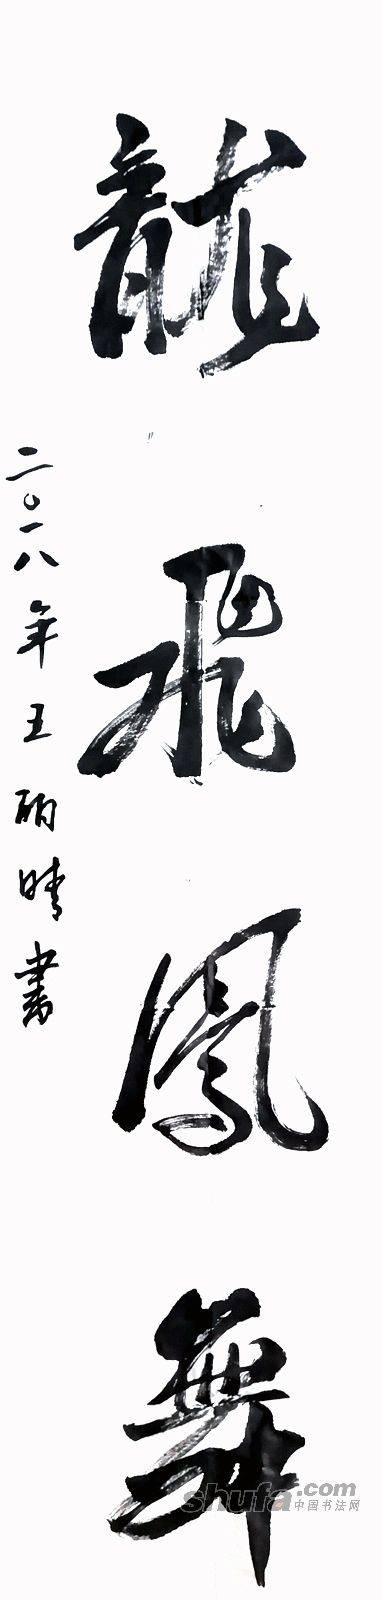 龍飛鳳舞
二〇一八年王硕晴書
shufa.com
中国书法网